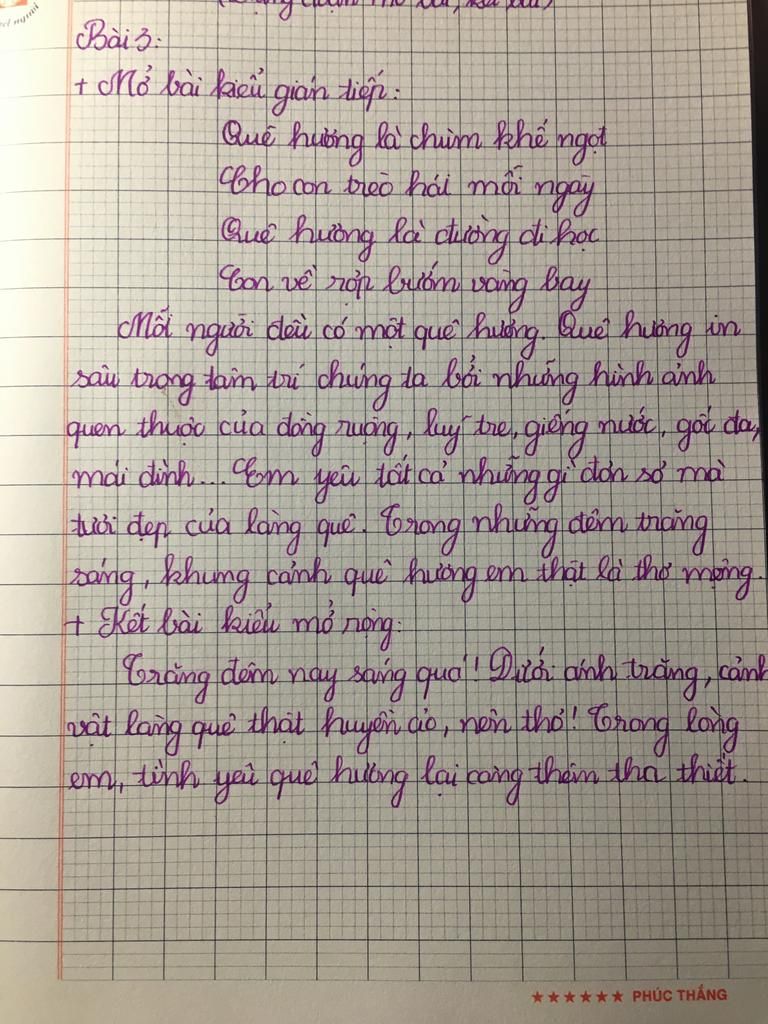 Bài 3:
+ Mở bài kiểu gián tiếp:
Quê hương là chùm khế ngọt
Cho con trèo hái mỗi ngày
Quê hương là đường đi học
Con về rợp bướm vàng bay
Mỗi người đều có một quê hương. Quê hương in
sâu trong tâm trí chúng ta bởi những hình ảnh
quen thuộc của đồng ruộng, luỹ tre, giếng nước, gốc đa,
mái đình... Em yêu tất cả những gì đơn sơ mà
tươi đẹp của làng quê. Trong những đêm trăng
sáng, khung cảnh quê hương em thật là thơ mộng.
+ Kết bài kiểu mở rộng:
Trăng đêm nay sáng quá! Dưới ánh trăng, cảnh
vật làng quê thật huyền ảo, nên thơ! Trong lòng
em, tình yêu quê hương lại càng thêm tha thiết.
★★★★★★ PHÚC THẮNG